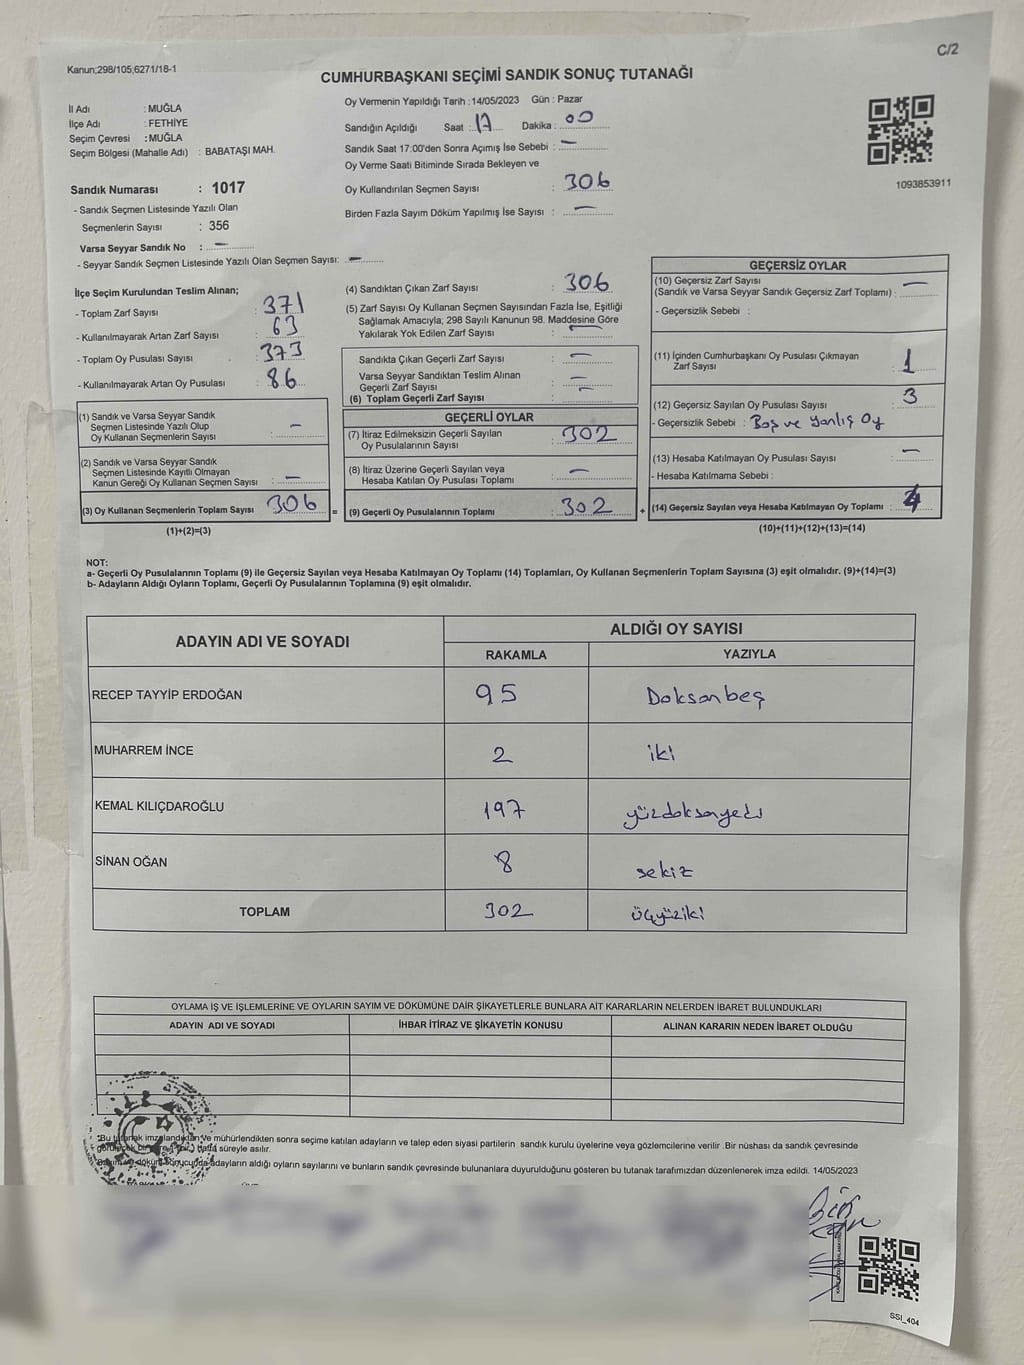 C/2
Kanun;298/105;6271/18-1
CUMHURBAŞKANI SEÇİMİ SANDIK SONUÇ TUTANAĞI
İl Adı : MUĞLA
İlçe Adı : FETHİYE
Seçim Çevresi : MUĞLA
Seçim Bölgesi (Mahalle Adı) : BABATAŞI MAH.
Sandık Numarası : 1017
- Sandık Seçmen Listesinde Yazılı Olan
Seçmenlerin Sayısı : 356
Varsa Seyyar Sandık No : —
- Seyyar Sandık Seçmen Listesinde Yazılı Olan Seçmen Sayısı: —
Oy Vermenin Yapıldığı Tarih : 14/05/2023 Gün : Pazar
Sandığın Açıldığı Saat : 17 Dakika : 00
Sandık Saat 17:00'den Sonra Açımış İse Sebebi : —
Oy Verme Saati Bitiminde Sırada Bekleyen ve
Oy Kullandırılan Seçmen Sayısı : 306
Birden Fazla Sayım Döküm Yapılmış İse Sayısı : —
1093853911
İlçe Seçim Kurulundan Teslim Alınan;
- Toplam Zarf Sayısı : 371
- Kullanılmayarak Artan Zarf Sayısı : 63
- Toplam Oy Pusulası Sayısı : 373
- Kullanılmayarak Artan Oy Pusulası : 86
(1) Sandık ve Varsa Seyyar Sandık
Seçmen Listesinde Yazılı Olup
Oy Kullanan Seçmenlerin Sayısı : —
(2) Sandık ve Varsa Seyyar Sandık
Seçmen Listesinde Kayıtlı Olmayan
Kanun Gereği Oy Kullanan Seçmen Sayısı : —
(3) Oy Kullanan Seçmenlerin Toplam Sayısı : 306
(1)+(2)=(3)
(4) Sandıktan Çıkan Zarf Sayısı : 306
(5) Zarf Sayısı Oy Kullanan Seçmen Sayısından Fazla İse, Eşitliği
Sağlamak Amacıyla; 298 Sayılı Kanunun 98. Maddesine Göre
Yakılarak Yok Edilen Zarf Sayısı : —
Sandıkta Çıkan Geçerli Zarf Sayısı : —
Varsa Seyyar Sandıktan Teslim Alınan
Geçerli Zarf Sayısı : —
(6) Toplam Geçerli Zarf Sayısı : —
GEÇERLİ OYLAR
(7) İtiraz Edilmeksizin Geçerli Sayılan
Oy Pusulalarının Sayısı : 302
(8) İtiraz Üzerine Geçerli Sayılan veya
Hesaba Katılan Oy Pusulası Toplamı : —
= (9) Geçerli Oy Pusulalarının Toplamı : 302
GEÇERSİZ OYLAR
(10) Geçersiz Zarf Sayısı
(Sandık ve Varsa Seyyar Sandık Geçersiz Zarf Toplamı) : —
- Geçersizlik Sebebi :
(11) İçinden Cumhurbaşkanı Oy Pusulası Çıkmayan
Zarf Sayısı : 1
(12) Geçersiz Sayılan Oy Pusulası Sayısı : 3
- Geçersizlik Sebebi : Boş ve Yanlış Oy
(13) Hesaba Katılmayan Oy Pusulası Sayısı : —
- Hesaba Katılmama Sebebi :
+ (14) Geçersiz Sayılan veya Hesaba Katılmayan Oy Toplamı : 4
(10)+(11)+(12)+(13)=(14)
NOT:
a- Geçerli Oy Pusulalarının Toplamı (9) ile Geçersiz Sayılan veya Hesaba Katılmayan Oy Toplamı (14) Toplamları, Oy Kullanan Seçmenlerin Toplam Sayısına (3) eşit olmalıdır. (9)+(14)=(3)
b- Adayların Aldığı Oyların Toplamı, Geçerli Oy Pusulalarının Toplamına (9) eşit olmalıdır.
ADAYIN ADI VE SOYADI ALDIĞI OY SAYISI
RAKAMLA YAZIYLA
RECEP TAYYİP ERDOĞAN 95 Doksanbeş
MUHARREM İNCE 2 iki
KEMAL KILIÇDAROĞLU 197 yüzdoksanyedi
SİNAN OĞAN 8 sekiz
TOPLAM 302 üçyüziki
OYLAMA İŞ VE İŞLEMLERİNE VE OYLARIN SAYIM VE DÖKÜMÜNE DAİR ŞİKAYETLERLE BUNLARA AİT KARARLARIN NELERDEN İBARET BULUNDUKLARI
ADAYIN ADI VE SOYADI İHBAR İTİRAZ VE ŞİKAYETİN KONUSU ALINAN KARARIN NEDEN İBARET OLDUĞU
"Bu tutanak imzalandıktan ve mühürlendikten sonra seçime katılan adayların ve talep eden siyasi partilerin sandık kurulu üyelerine veya gözlemcilerine verilir .Bir nüshası da sandık çevresinde
süreyle asılır.
adayların aldığı oyların sayılarını ve bunların sandık çevresinde bulunanlara duyurulduğunu gösteren bu tutanak tarafımızdan düzenlenerek imza edildi. 14/05/2023
SSI_404